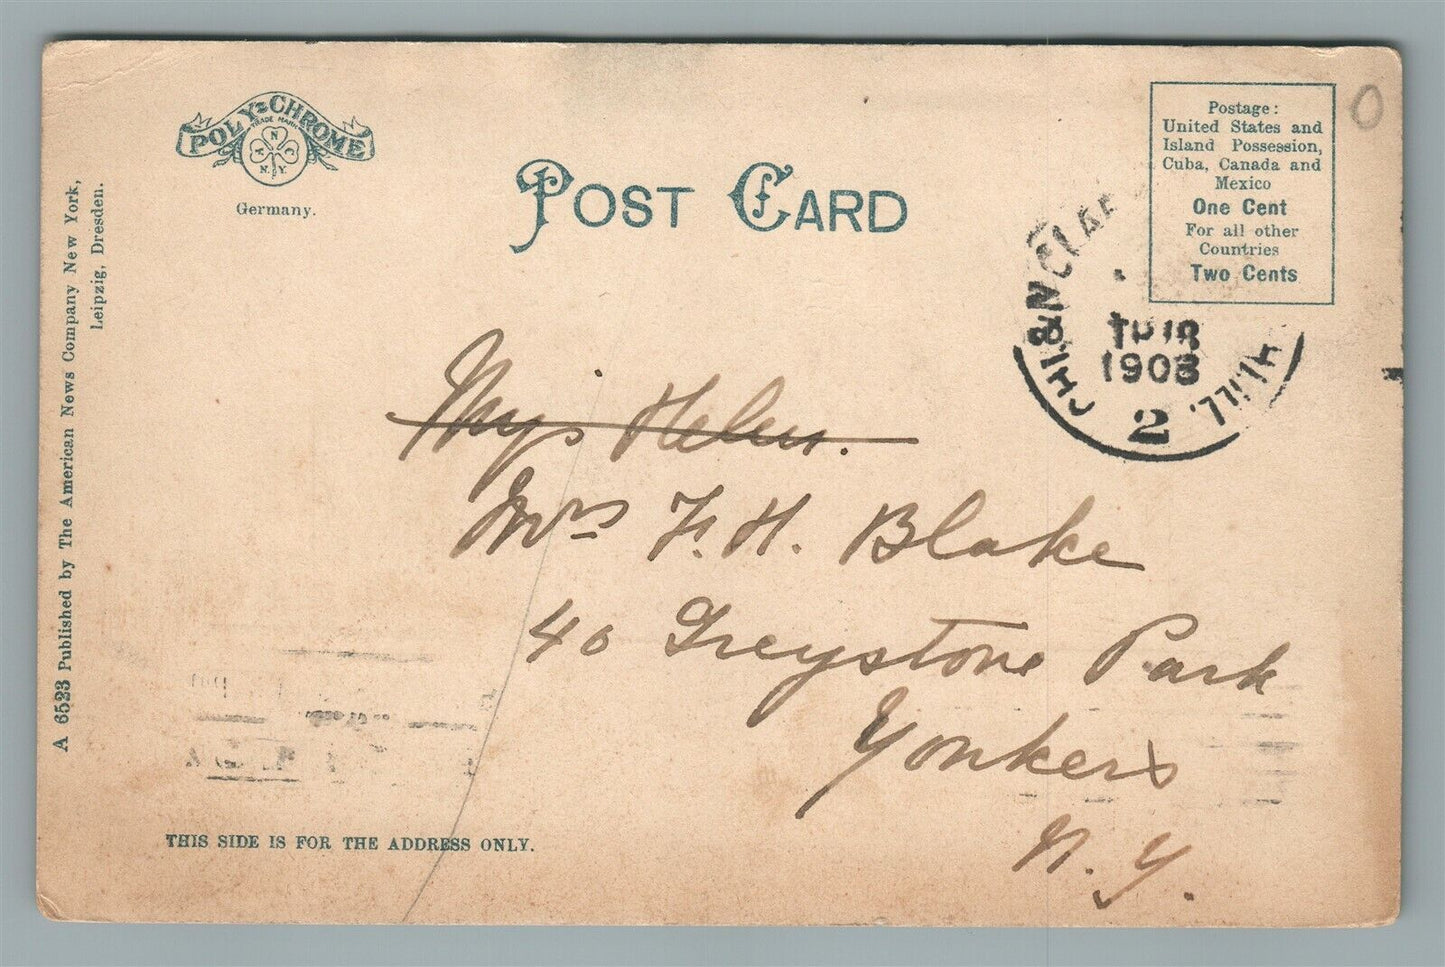 POLY-CHROME
TRADE MARK
A N C
N.Y.
Germany.
POST CARD
Postage:
United States and
Island Possession,
Cuba, Canada and
Mexico
One Cent
For all other
Countries
Two Cents
0
CHI. & N CLAR
1908
2
A 6523 Published by The American News Company New York,
Leipzig, Dresden.
Helen.
Mrs F. H. Blake
40 Greystone Park
Yonkers
N. Y.
THIS SIDE IS FOR THE ADDRESS ONLY.